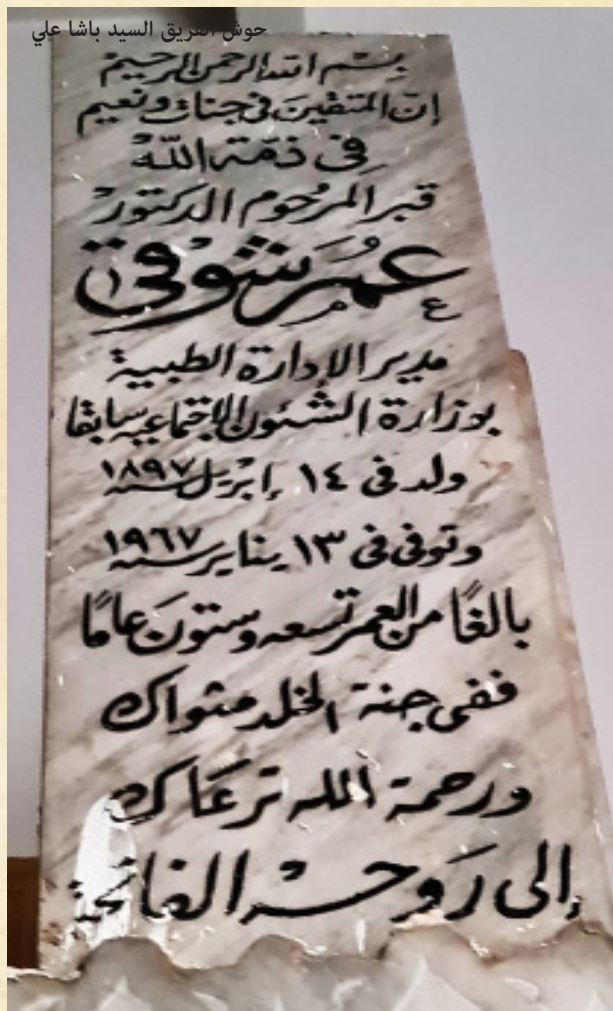 حوش الفريق السيد باشا علي
بسم الله الرحمن الرحيم
إن المتقين في جنات ونعيم
في ذمة الله
قبر المرحوم الدكتور
عمر شوقي
مدير الإدارة الطبية
بوزارة الشئون الاجتماعيه سابقا
ولد في ١٤ إبريل سنة ١٨٩٧
وتوفى فى ١٣ يناير سنة ١٩٦٧
بالغًا من العمر تسعه وستونَ عامًا
ففى جنة الخلد مثواك
ورحمة الله ترعَاك
إلى رَوحه الفاتحة